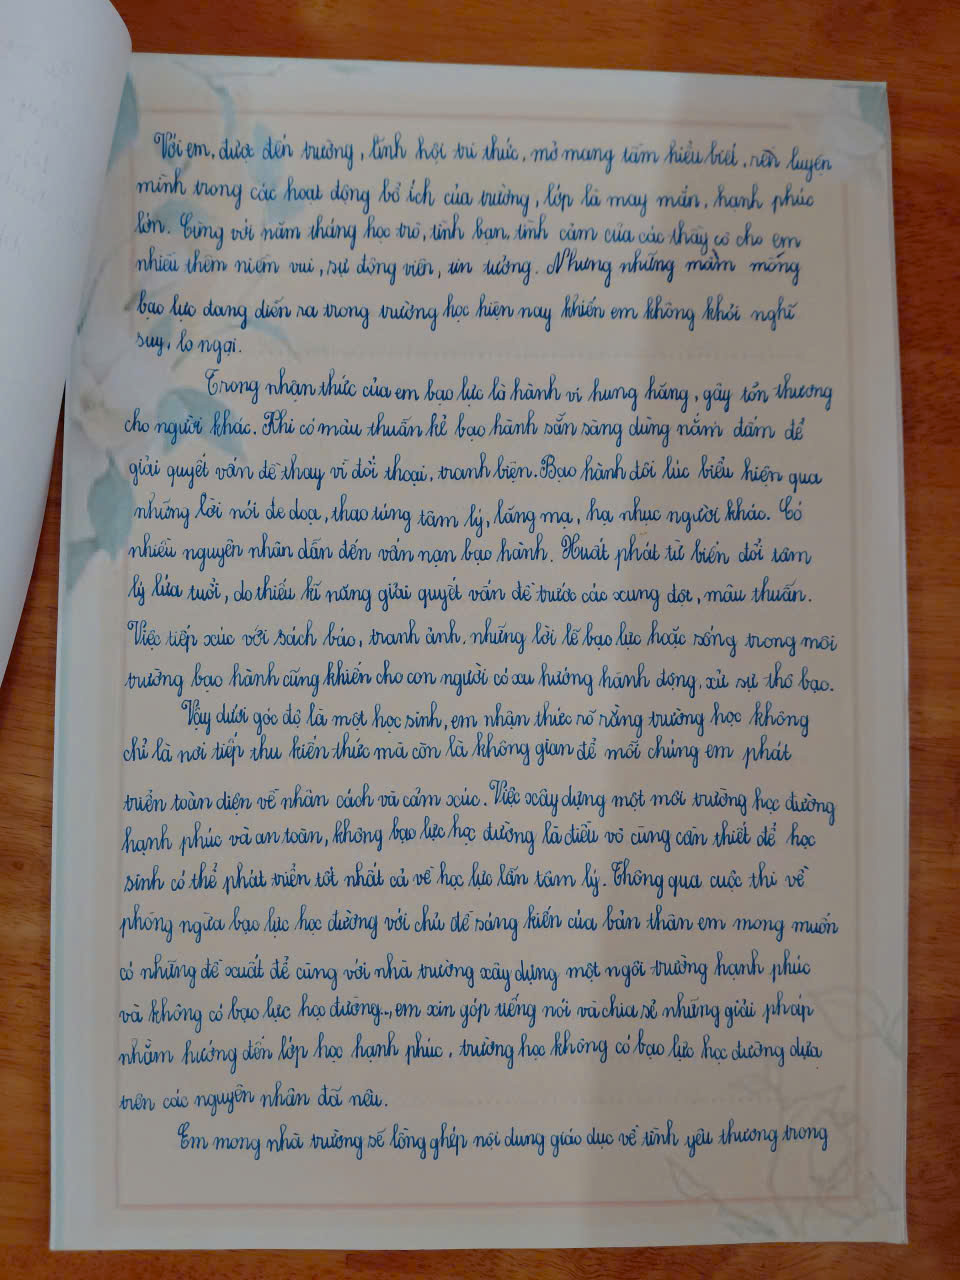 Với em, được đến trường, lĩnh hội tri thức, mở mang tầm hiểu biết, rèn luyện
mình trong các hoạt động bổ ích của trường, lớp là may mắn, hạnh phúc
lớn. Cùng với năm tháng học trò, tình bạn, tình cảm của các thầy cô cho em
nhiều thêm niềm vui, sự động viên, tin tưởng. Nhưng những mầm mống
bạo lực đang diễn ra trong trường học hiện nay khiến em không khỏi nghĩ
suy, lo ngại.
Trong nhận thức của em bạo lực là hành vi hung hăng, gây tổn thương
cho người khác. Khi có mâu thuẫn kẻ bạo hành sẵn sàng dùng nắm đấm để
giải quyết vấn đề thay vì đối thoại, tranh biện. Bạo hành đôi lúc biểu hiện qua
những lời nói đe doạ, thao túng tâm lý, lăng mạ, hạ nhục người khác. Có
nhiều nguyên nhân dẫn đến vấn nạn bạo hành. Xuất phát từ biến đổi tâm
lý lứa tuổi, do thiếu kĩ năng giải quyết vấn đề trước các xung đột, mâu thuẫn.
Việc tiếp xúc với sách báo, tranh ảnh, những lời lẽ bạo lực hoặc sống trong môi
trường bạo hành cũng khiến cho con người có xu hướng hành động, xử sự thô bạo.
Vậy dưới góc độ là một học sinh, em nhận thức rõ rằng trường học không
chỉ là nơi tiếp thu kiến thức mà còn là không gian để mỗi chúng em phát
triển toàn diện về nhân cách và cảm xúc. Việc xây dựng một môi trường học đường
hạnh phúc và an toàn, không bạo lực học đường là điều vô cùng cần thiết để học
sinh có thể phát triển tốt nhất cả về học lực lẫn tâm lý. Thông qua cuộc thi về
phòng ngừa bạo lực học đường với chủ đề sáng kiến của bản thân em mong muốn
có những đề xuất để cùng với nhà trường xây dựng một ngôi trường hạnh phúc
và không có bạo lực học đường.., em xin góp tiếng nói và chia sẻ những giải pháp
nhằm hướng đến lớp học hạnh phúc, trường học không có bạo lực học đường dựa
trên các nguyên nhân đã nêu.
Em mong nhà trường sẽ lồng ghép nội dung giáo dục về tình yêu thương trong